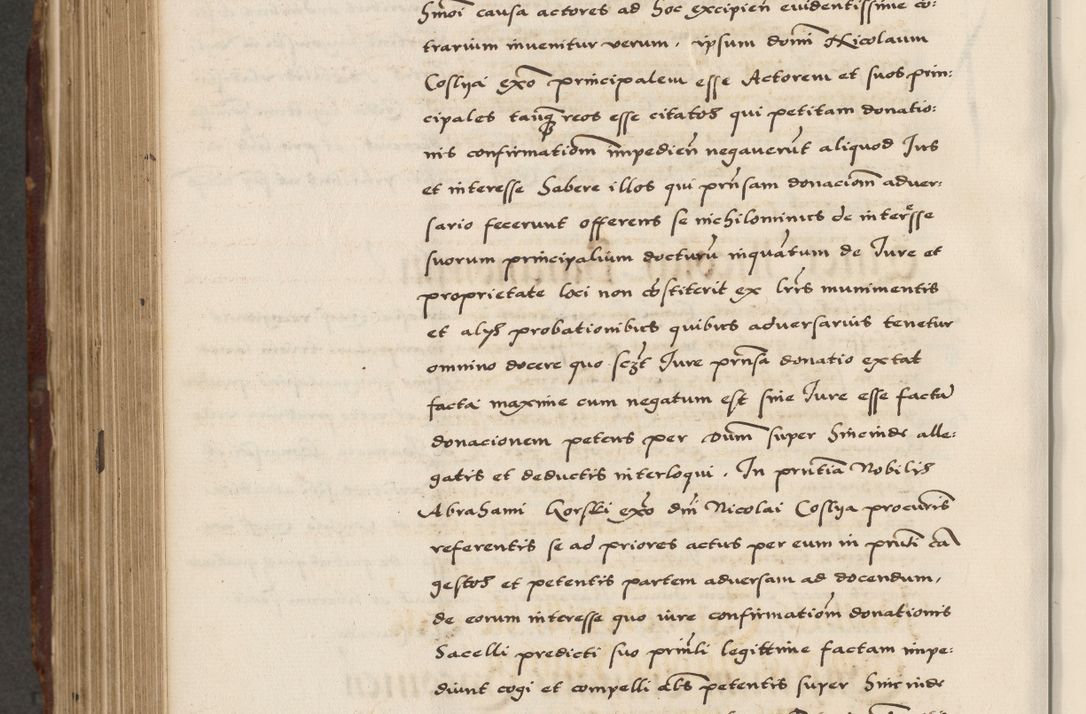 hmoi causa actores ad hoc excipien evidentissime co:
trarium invenitur verum, ipsum domi Nicolaum
Coslya exo principalem esse Actorem et suos prin:
cipales tanq reos esse citatos qui petitam donatio:
nis confirmatiom impedien negaverut aliquod Jus
et interesse habere illos qui prnsam donaciom adver:
sario fecerunt offerens se nichilominus de interesse
suorum principalium docturu inquatum de Jure et
proprietate loci non costiterit ex lrris munimentis
et alys probationibus quibus adversarius tenetur
omnino docere quo sczt Jure prnsa donatio extat
facta maxime cum negatum est sine Jure esse factu
donacionem petens per Dum super hincinde alle:
gatis et deductis interloqui. In prntia Nobilis
Abrahami Korski exo dni Nicolai Coslya procuris
referentis se ad priores actus per eum in prnti ca
gestos et petentis partem adversam ad docendum,
de eorum interesse quo iure confirmatiom donationis
Sacelli predicti suo prinli legittime factam impe:
diunt cogi et compelli als petentis super hincinde